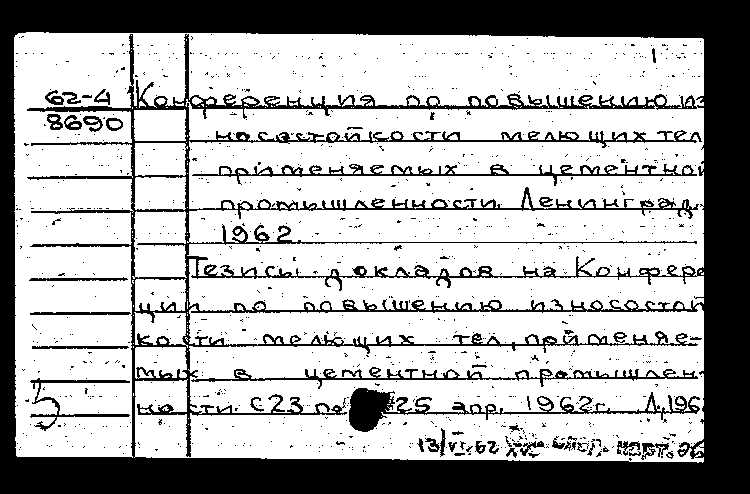 62-4
8690
Конференция по повышению из
носостойкости мелющих тел,
применяемых в цементной
промышленности. Ленинград.
1962.
Тезисы докладов на Конфере
ции по повышению износостой
кости мелющих тел, применяе-
мых в цементной промышлен-
ности. С 23 по 25 апр. 1962г. Л, 196
13/VI-62